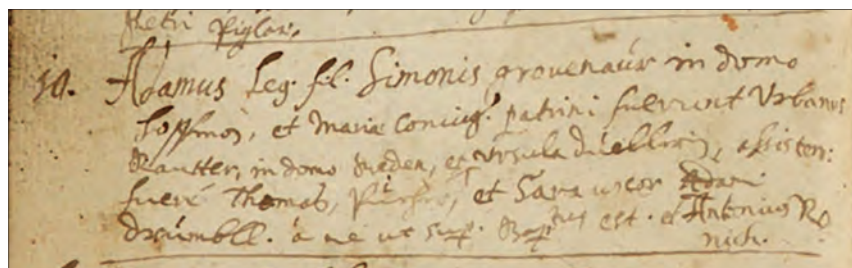 Petri Piglar.
10. Adamus Leg. fil. Simonis grovenaür in domo
et Mariæ Coniug. patrini fuerunt Vrbanus
Rautter, in domo et Vrsula assisten:
fuere Thomas, et Sara uxor Adami
drümbll. a me ut sup. Bap.tus est. et Antonius Ro
nich.